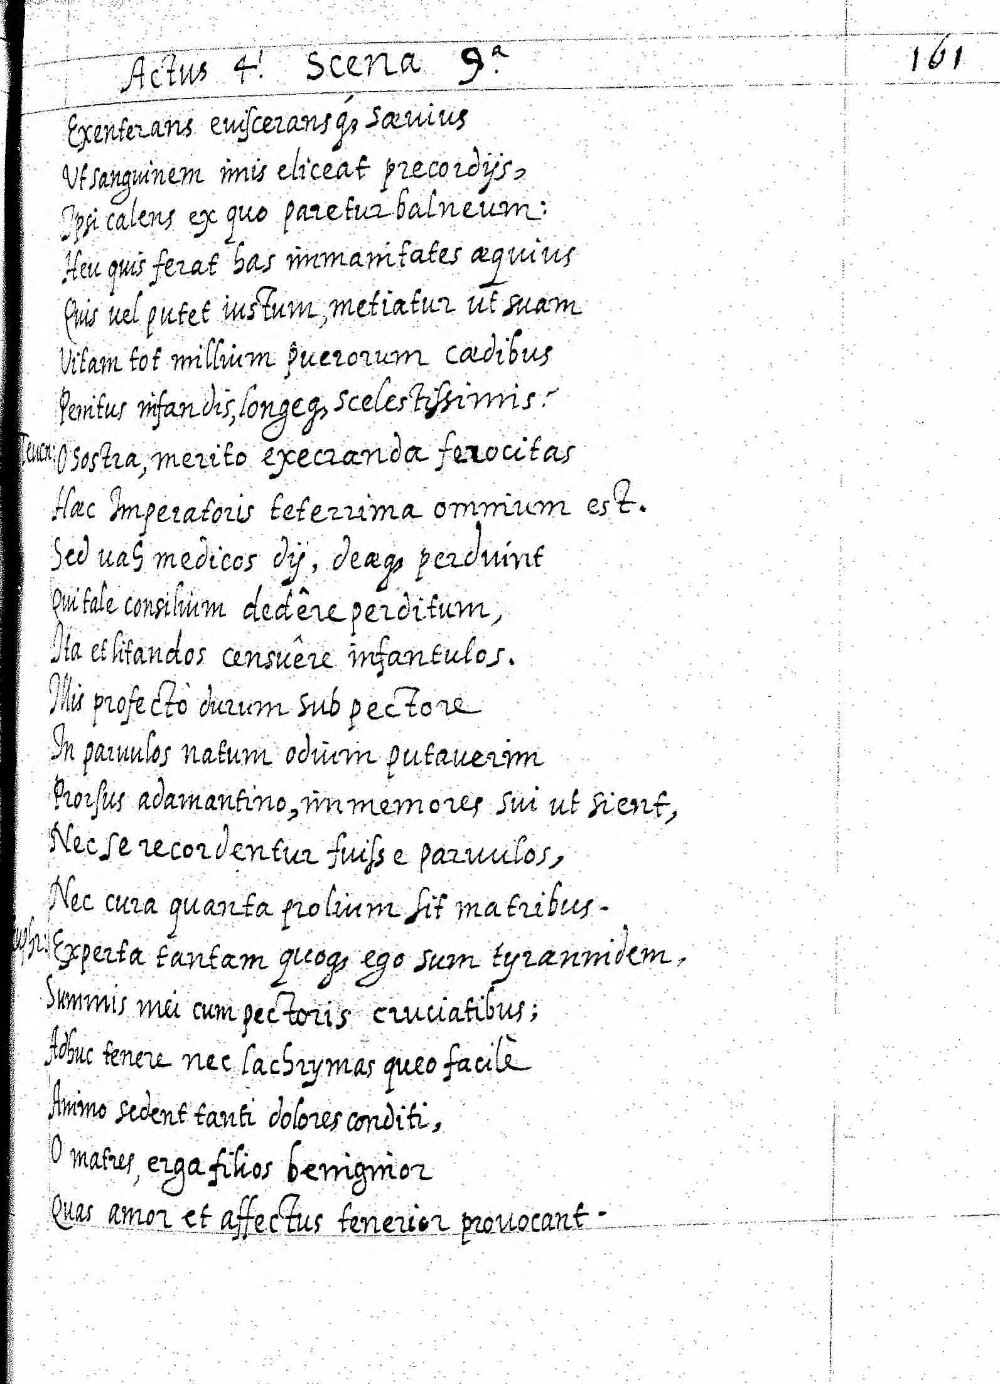 Actus 4.ⁱ Scena 9.ª 161
Exenterans euisceransq́ȝ sæuius
Ut sanguinem imis eliceat precordijs,
Ipsi calens ex quo paretur balneum:
Heu quis ferat has immanitates æquius
Quis uel putet iustum, metiatur ut suam
Vitam tot millium puerorum cædibus
Penitus infandis, longeqȝ scelestissimis!
O Sostra, merito execranda ferocitas
Hæc Imperatoris teterrima omnium est.
Sed uah medicos dij, deæqȝ perduint
Qui tale consilium dedêre perditum,
Ita et litandos censuêre infantulos.
Illis profectò durum sub pectore
In paruulos natum odium putauerim
Prorsus adamantino, immemores sui ut sient,
Nec se recordentur fuisse paruulos,
Nec cura quanta prolium sit matribus.
Experta tantam quoqȝ ego sum tyrannidem,
Summis mei cum pectoris cruciatibus;
Adhuc tenere nec lachrymas queo facilè
Animo sedent tanti dolores conditi,
O matres, erga filios benignior
Quas amor et affectus tenerior prouocant.